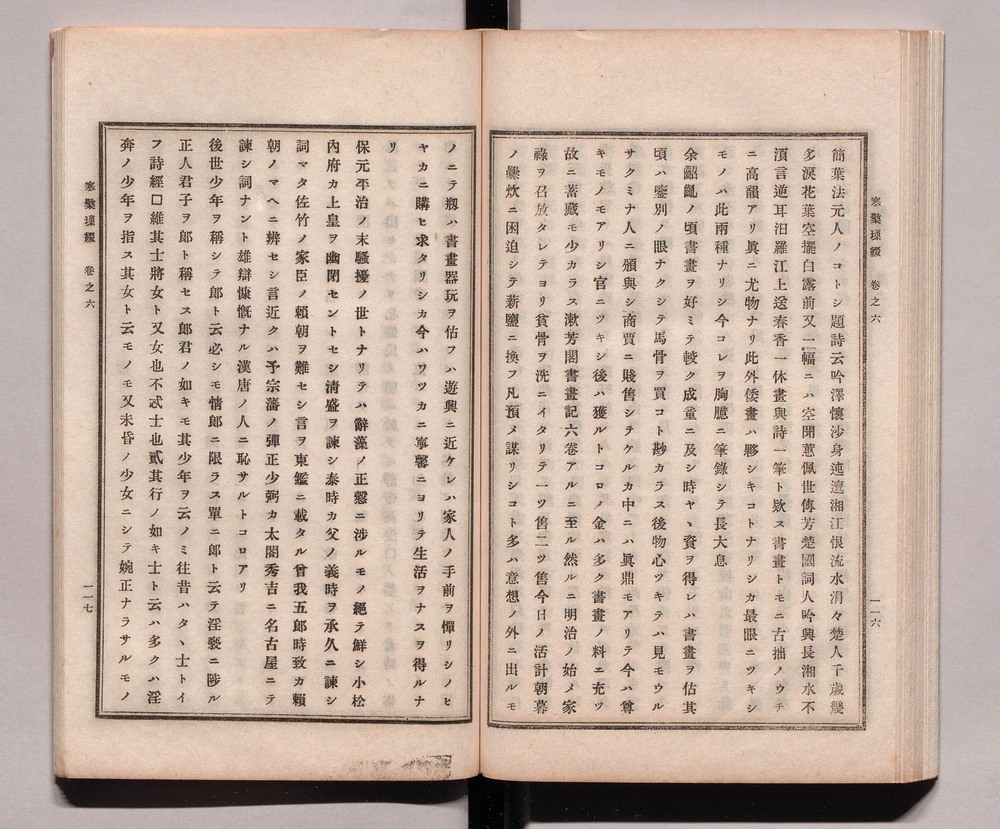 寒檠璅綴 卷之六
一一六
簡葉法元人ノコトシ題詩云吟澤懷沙身迍邅湘江恨流水涓々楚人千歲幾
多淚花葉空擺白露前又一幅ニハ空聞蕙佩世傳芳楚國詞人吟興長湘水不
湏言逆耳汨羅江上送春香一休畫與詩一筆ト欵ス書畫トモニ古拙ノウチ
ニ高韻アリ眞ニ尤物ナリ此外倭畫ハ夥シキコトナリシカ最眼ニツキシ
モノハ此兩種ナリシ今コレヲ胸臆ニ筆錄シテ長大息
余齠齔ノ頃書畫ヲ好ミテ較ク成童ニ及シ時ヤヽ資ヲ得レハ書畫ヲ估其
頃ハ鑒別ノ眼ナクシテ馬骨ヲ買コト尠カラス後物心ツキテハ見モウル
サクミナ人ニ頒與シ商賈ニ賤售シテケルカ中ニハ眞鼎モアリテ今ハ尊
キモノモアリシ官ニツキシ後ハ獲ルトコロノ金ハ多ク書畫ノ料ニ充ツ
故ニ蓄藏モ少カラス漱芳閣書畫記六卷アルニ至ル然ルニ明治ノ始メ家
祿ヲ召放タレテヨリ貧骨ヲ洗ニイタリテ一ツ售二ツ售今日ノ活計朝暮
ノ爨炊ニ困迫シテ薪鹽ニ換フ凡預メ謀リシコト多ハ意想ノ外ニ出ルモ
ノニテ剏ハ書畫器玩ヲ估フハ遊興ニ近ケレハ家人ノ手前ヲ憚リシノヒ
ヤカニ購ヒ求タリシカ今ハワツカニ寧馨ニヨリテ生活ヲナスヲ得ルナ
リ
保元平治ノ末騷擾ノ世トナリテハ辭藻ノ正懿ニ涉ルモノ絕テ鮮シ小松
內府カ上皇ヲ幽閉セントセシ清盛ヲ諫シ泰時カ父ノ義時ヲ承久ニ諫シ
詞マタ佐竹ノ家臣ノ賴朝ヲ難セシ言ヲ東鑑ニ載タル曾我五郎時致カ賴
朝ノマヘニ辨セシ言近クハ予宗藩ノ彈正少弼カ太閤秀吉ニ名古屋ニテ
諫シ詞ナント雄辯慷慨ナル漢唐ノ人ニ恥サルトコロアリ
後世少年ヲ稱シテ郎ト云必シモ情郎ニ限ラス單ニ郎ト云テ淫褻ニ陟ル
正人君子ヲ郎ト稱セス郎君ノ如キモ其少年ヲ云ノミ往昔ハタヽ士トイ
フ詩經口維其士將女ト又女也不忒士也貳其行ノ如キ士ト云ハ多クハ淫
奔ノ少年ヲ指ス其女ト云モノモ又未昏ノ少女ニシテ婉正ナラサルモノ
寒檠璅綴 卷之六
一一七